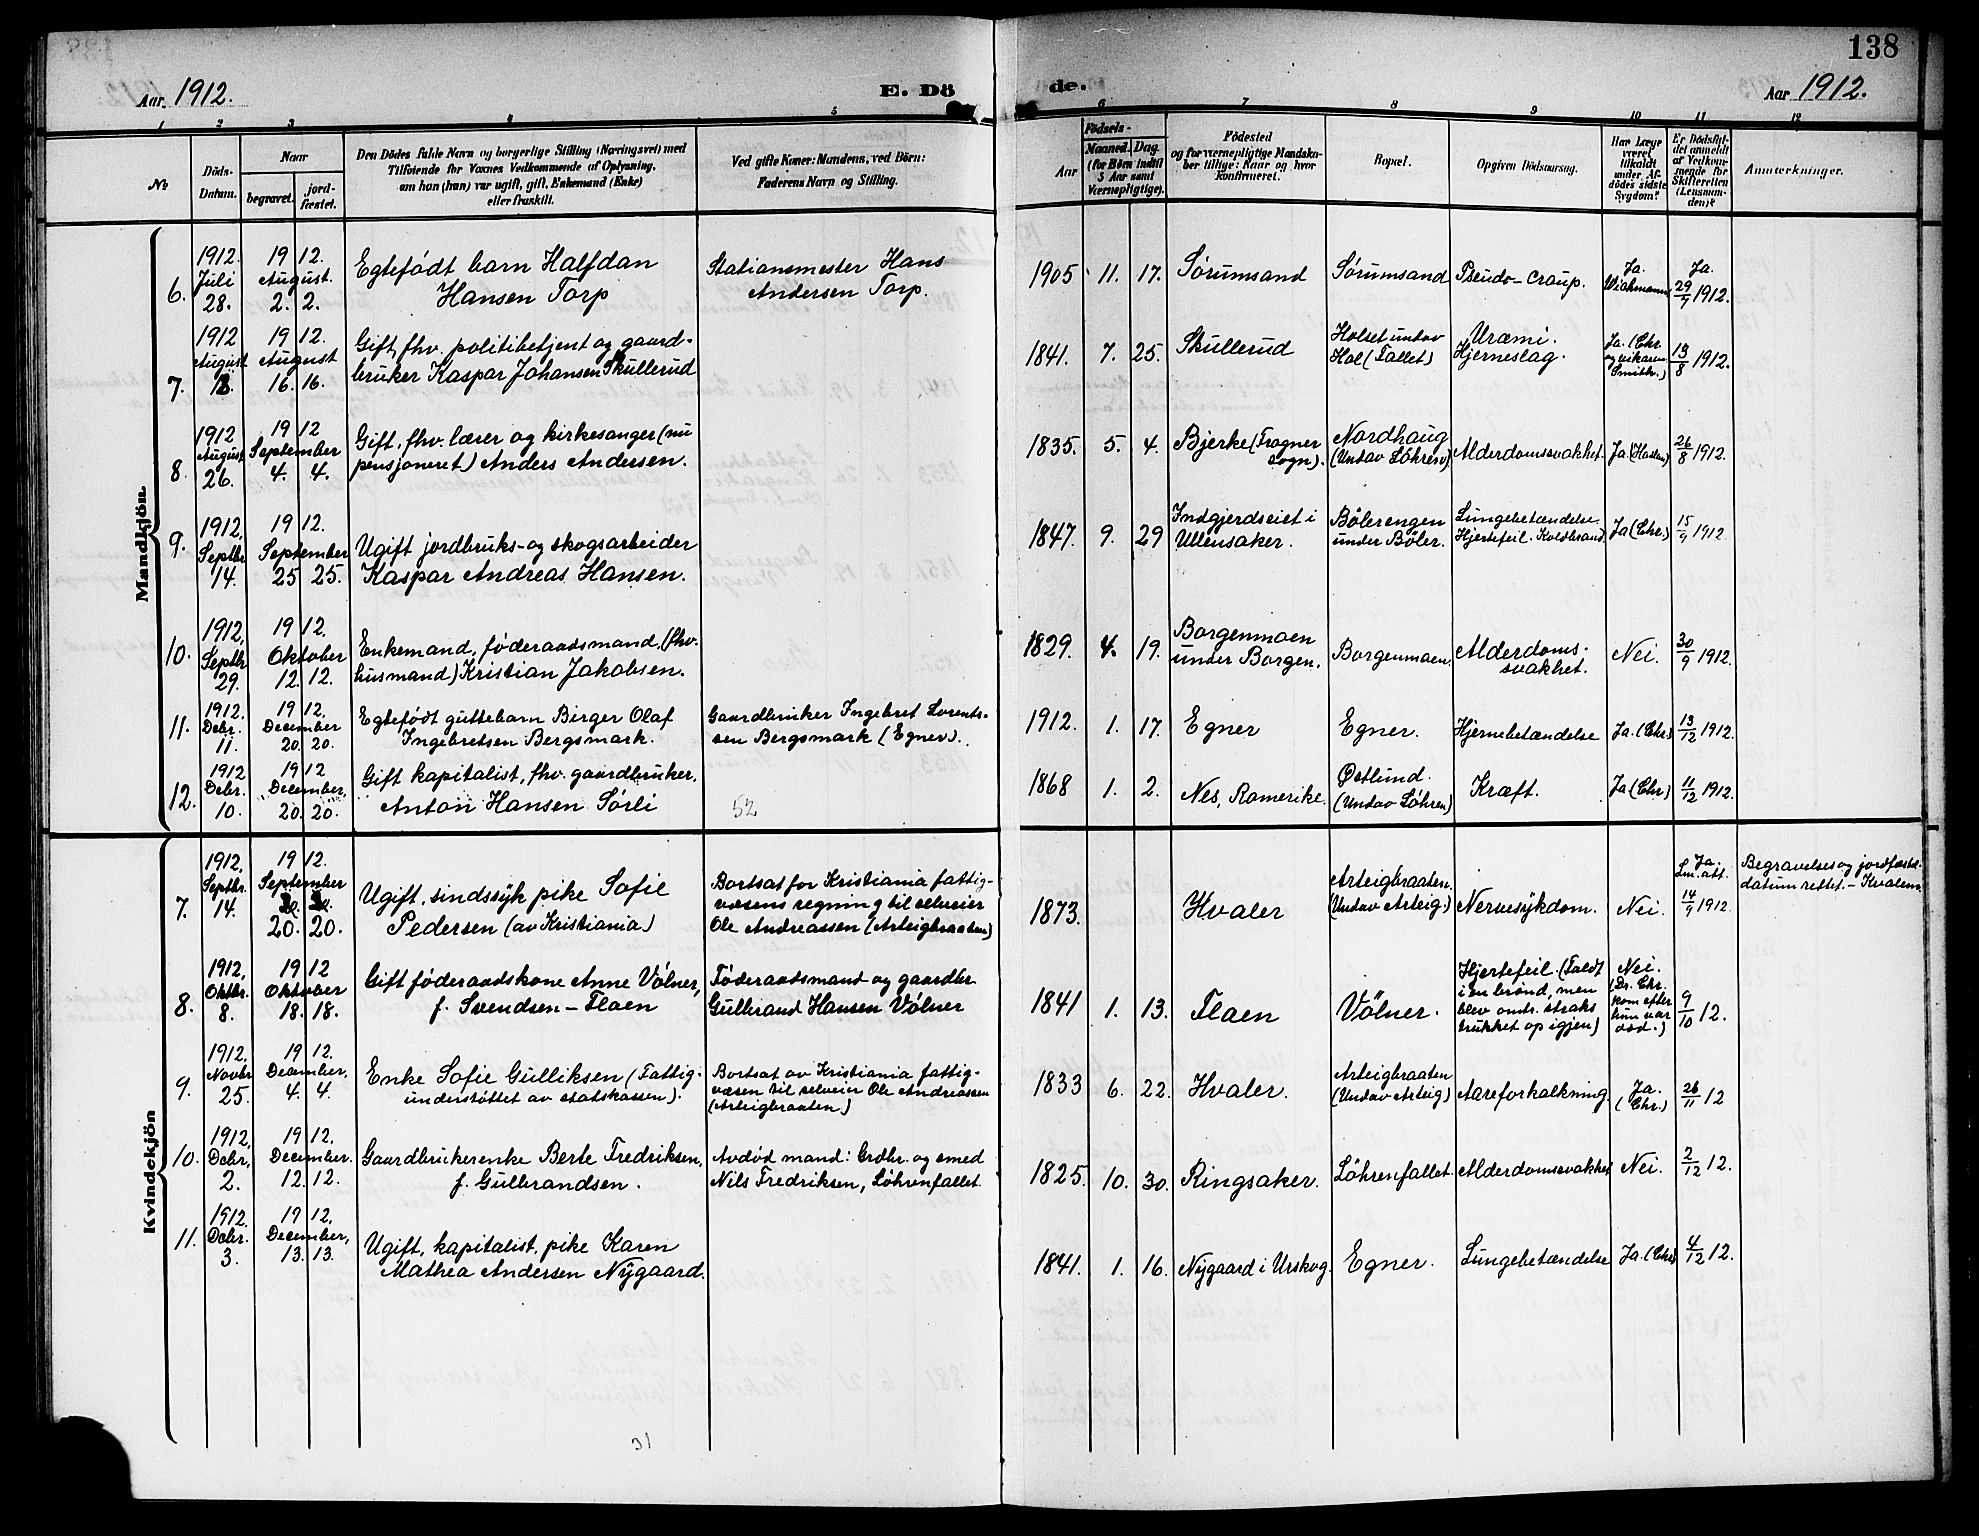 138
Aar 1912.
E. Dö
de.
Aar 1912.
1 2 3 4 5 6 7 8 9 10 11 12
№
Döds-
Datum.
Naar
begravet.
jord-
fæstet.
Den Dödes fulde Navn og borgerlige Stilling (Næringsvei) med
Tilføiende for Voxnes Vedkommende af Oplysning,
om han (hun) var ugift, gift, Enkemand (Enke)
eller fraskilt.
Ved gifte Koner: Mandens, ved Börn:
Faderens Navn og Stilling.
Födsels-
Aar
Maaned. Dag.
(for Börn indtil
5 Aar samt
Værnepligtige).
Födested
og for værnepligtige Mandska-
ber tillige: Naar og hvor
konfirmeret.
Bopæl.
Opgiven Dödsaarsag.
Har Læge
været
tilkaldt
under Af-
dödes sidste
Sygdom?
Er Dödsfal-
det anmeldt
af Vedkom-
mende for
Skifteretten
(Lensman-
den)?
Anmærkninger.
Mandkjön.
6.
1912.
Juli
28.
19 12.
August.
2. 2.
Egtefödt barn Halfdan
Hansen Torp
Stationsmester Hans
Andersen Torp.
1905 11. 17.
Sørumsand
Sørumsand
Pseudo-Croup.
Ja.
Wichmann
Ja.
29/7 1912.
7.
1912
August
13.
19 12.
August
16. 16.
Gift, fhv. politibetjent og gaard-
bruker Kaspar Johansen Skullerud
1841. 7. 25.
Skullerud
Holset undav
Hol (Fallet)
Uræmi.
Hjerneslag.
Ja. (Chr.
og vikaren
Smith.)
15/8 1912.
8.
1912
August
26.
19 12
September
4. 4.
Gift, fhv. lærer og kirkesanger (nu
pensjoneret) Anders Andersen.
1835. 5. 4.
Bjerke (Frogner
sogn).
Nordhaug
(Undav Løhren).
Alderdomssvakhet.
Ja. (Haslem)
26/8 1912.
9.
1912,
Septbr
14.
19 12.
September
25 25.
Ugift jordbruks- og skogsarbeider
Kaspar Andreas Hansen.
1847. 9. 29
Indgjerdseiet i
Ullensaker.
Bølerengen
under Bøler.
Lungebetændelse.
Hjertefeil. Koldbrand.
Ja (Chr.)
15/9 1912
10.
1912,
Septbr
29.
19 12.
Oktober
12. 12.
Enkemand, føderaadsmand, (fhv.
husmand) Kristian Jakobsen.
1829. 4. 19.
Borgenmoen
under Borgen.
Borgenmoen.
Alderdoms-
svakhet.
Nei.
30/9 1912.
11.
1912.
Debr.
11.
19 12.
December
20. 20.
Egtefödt guttebarn Birger Olaf
Ingebretsen Bergsmark.
Gaardbruker Ingebret Lorents-
sen Bergsmark (Egner).
1912. 1. 17.
Egner
Egner.
Hjernebetændelse
Ja. (Chr.)
13/12 1912.
12.
1912
Debr.
10.
19 12
December,
20. 20.
Gift kapitalist, fhv. gaardbruker.
Anton Hansen Sørli
52
1868 1. 2.
Nes, Romerike.
Østlund.
(Undav Løhren)
Kræft.
Ja (Chr.)
11/12 1912.
Kvindekjön
7.
1912,
Septbr.
14.
19 12.
September
20. 20.
Ugift, sindssyk pike Sofie
Pedersen (av Kristiania)
Bortsat for Kristiania fattig-
væsens regning til selveier
Ole Andreassen (Arteigbraaten)
1873.
Hvaler
Arteigbraaten.
(Undav Arteig.)
Nervesykdom.
Nei.
Ja.
Lm. att.
14/9 1912.
Begravelses og jordfæst.
datum rettet. - Kvalem
8.
1912,
Oktbr.
8.
19 12
Oktober
18. 18.
Gift føderaadskone Anne Vølner,
f. Svendsen - Flaen
Føderaadsmand og gaardbr.
Gulbrand Hansen Vølner
1841 1. 13.
Flaen
Vølner.
Hjertefeil. (Faldt
i en brønd, men
blev omtr. straks
trukket op igjen)
Nei.
(Dr. Chr.
kom efter
hun var
død.)
9/10 12.
9.
1912.
Novbr
25.
19 12.
December,
4. 4.
Enke Sofie Gulliksen (Fattig-
understøttet av statskassen).
Bortsat av Kristiania fattig-
væsen til selveier Ole Andreassen
(Arteigbraaten)
1833 6. 22.
Hvaler.
Arteigbraaten
(Undav Arteig)
Aareforkalkning.
Ja.
(Chr.)
26/11 12
10.
1912,
Debr,
2.
19 12.
December.
12. 12.
Gaardbrukerenke Berte Fredriksen,
f. Gulbrandsen.
Avdød mand: Grdbr. og smed
Nils Fredriksen, Løhrenfallet.
1825. 10. 30.
Ringsaker.
Løhrenfallet
Alderdomssvakhet
Nei.
2/12 12.
11.
1912.
Debr.
3.
19 12.
December,
13. 13.
Ugift, kapitalist, pike Karen
Mathea Andersen Nygaard.
1841. 1. 16.
Nygaard i Urskog.
Egner.
Lungebetændelse
Ja. (Chr)
4/12 12.
31